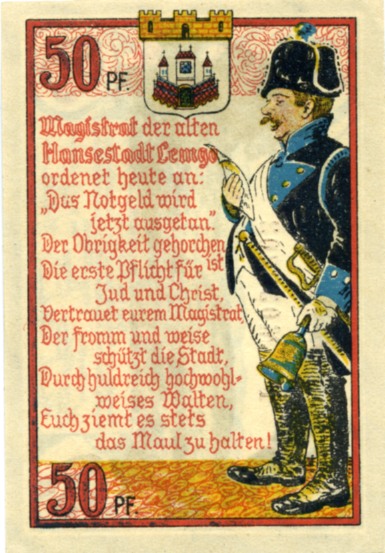 50 PF
Magistrat der alten
Hansestadt Lemgo
ordenet heute an:
„Das Notgeld wird
jetzt ausgetan."
Der Obrigkeit gehorchen
ist
Die erste Pflicht für
Jud und Christ,
Vertrauet eurem Magistrat,
Der fromm und weise
schützt die Stadt,
Durch huldreich hochwohl-
weises Walten,
Euch ziemt es stets
das Maul zu halten!
50 PF